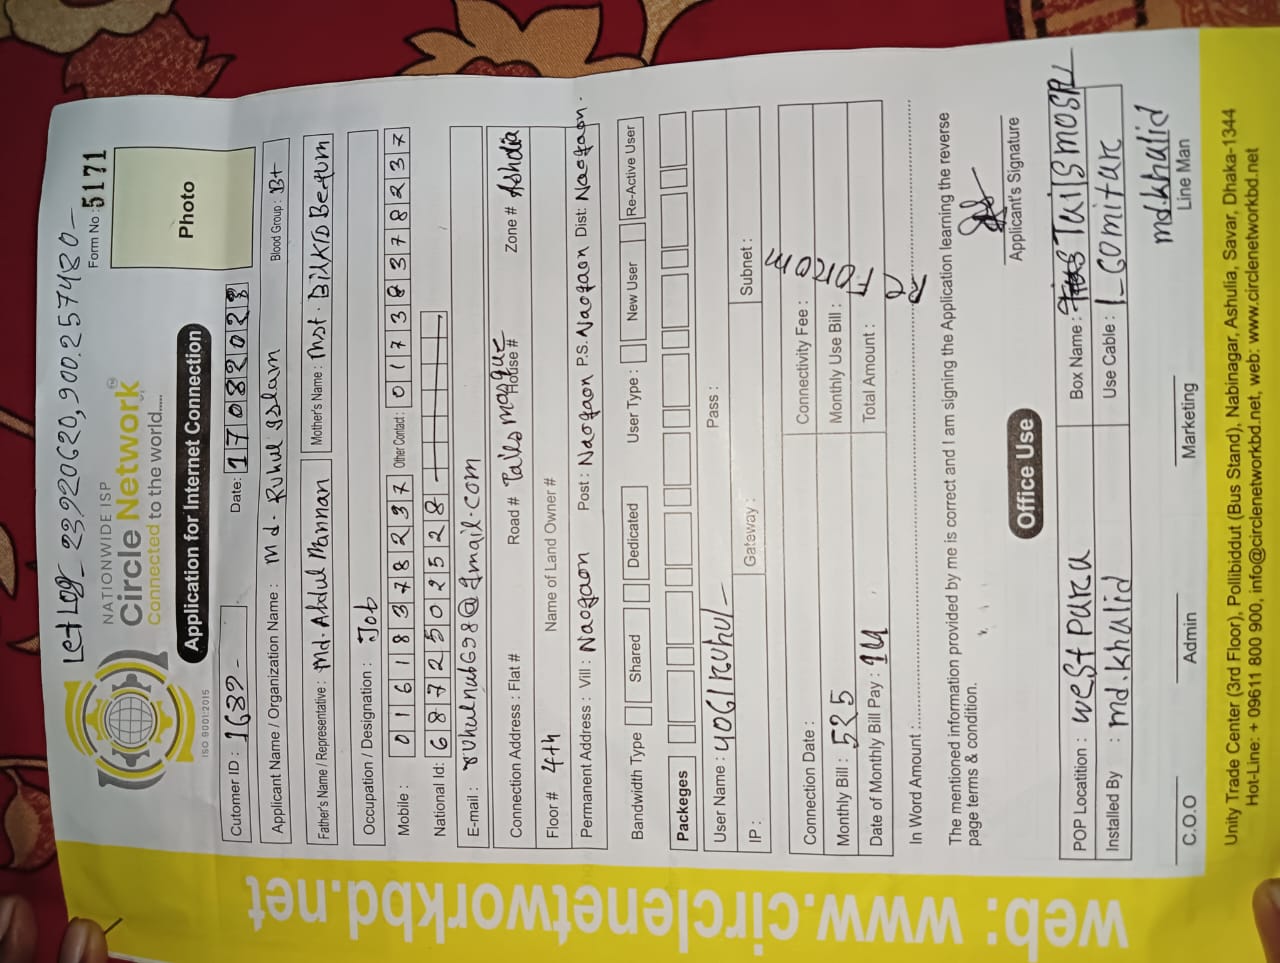 Let Log_ 23.920620,900.257480_
NATIONWIDE ISP
Circle Network
Connected to the world.....
ISO 9001:2015
Form No : 5171
Application for Internet Connection
Photo
Cutomer ID : 1639 -
Date: 17082023
Applicant Name / Organization Name : Md. Ruhul Islam
Blood Group : B+
Father's Name / Representative : Md. Abdul Mannan
Mother's Name : Mst. Bilkis Begum
Occupation / Designation : Job
Mobile : 01618378237
Other Contact: 01738378237
National Id: 6872502528
E-mail : ruhulnub698@gmail.com
Connection Address : Flat # Road # Tails mosque House # Zone # Ashdia
Floor # 4th Name of Land Owner #
Permanent Address : Vill : Naogaon Post : Naogaon P.S. Naogaon Dist: Naogaon.
Bandwidth Type Shared Dedicated User Type : New User Re-Active User
Packeges
User Name : 4061ruhul_ Pass :
IP : Gateway : Subnet :
Connection Date : Connectivity Fee :
Monthly Bill : 525 Monthly Use Bill :
Date of Monthly Bill Pay : Total Amount :
In Word Amount :
The mentioned information provided by me is correct and I am signing the Application learning the reverse
page terms & condition.
Applicant's Signature
Office Use
POP Locatition : West Para Box Name :
Installed By : md.khalid Use Cable :
md.khalid
C.O.O Admin Marketing Line Man
Unity Trade Center (3rd Floor), Pollibiddut (Bus Stand), Nabinagar, Ashulia, Savar, Dhaka-1344
Hot-Line: + 09611 800 900, info@circlenetworkbd.net, web: www.circlenetworkbd.net
web: www.circlenetworkbd.net